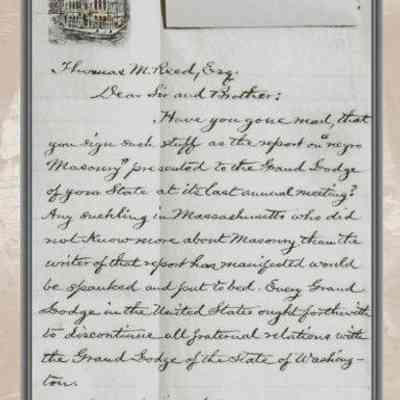 Thomas M. Reed, Esq.
Dear Sir and Brother:
Have you gone mad, that
you sign such stuff as the report on "negro
Masonry" presented to the Grand Lodge
of your State at its last annual meeting?
Any suckling in Massachusetts who did
not know more about Masonry than the
writer of that report has manifested would
be spanked and put to bed. Every Grand
Lodge in the United States ought forthwith
to discontinue all fraternal relations with
the Grand Lodge of the State of Washing-
ton.